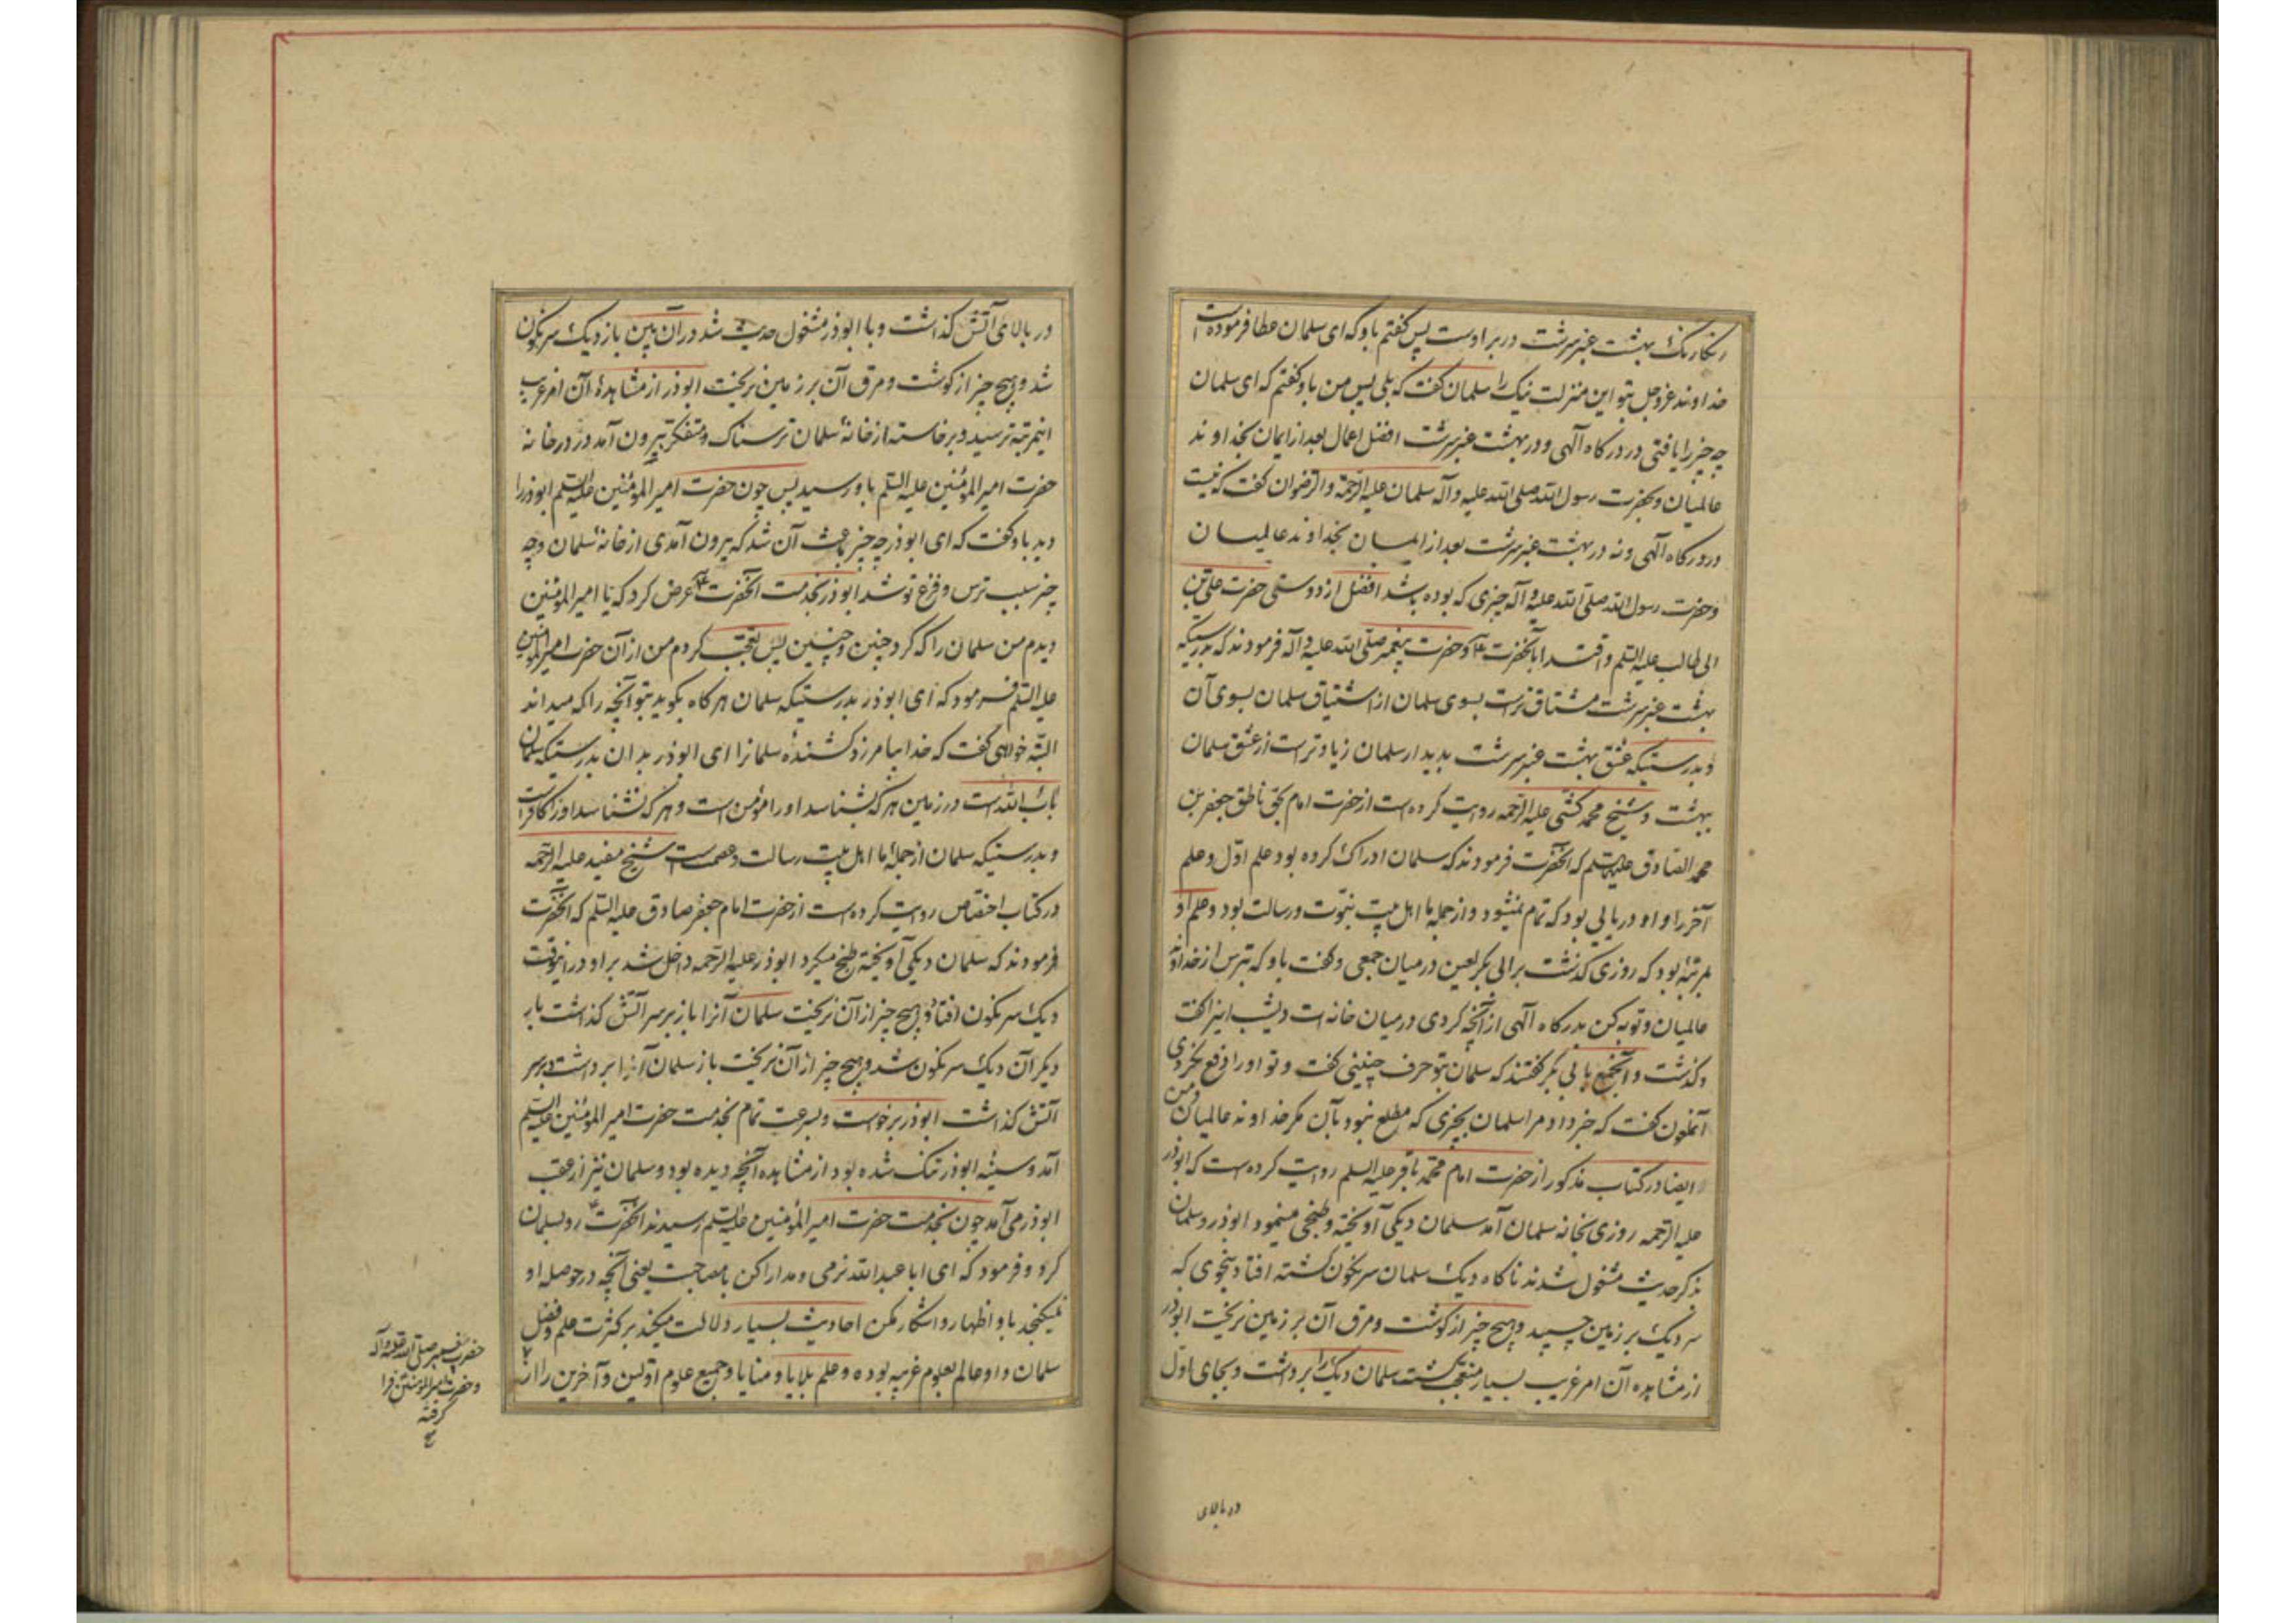 رنگارنگ بهشت عنبر سرشت در بر اوست پس گفتم باو که ای سلمان عطا فرموده است
خداوند عز و جل بتو این منزلت نیک را سلمان گفت که بلی پس من باو گفتم که ای سلمان
چه چیز را یافتی در درگاه آلهی و در بهشت عنبر سرشت افضل اعمال بعد از ایمان بخداوند
عالمیان و بحضرت رسول الله صلی الله علیه و آله سلمان علیه الرحمة و الرضوان گفت که نیست
در درگاه آلهی و نه در بهشت عنبر سرشت بعد از ایمان بخداوند عالمیان
و حضرت رسول الله صلی الله علیه و آله چیزی که بوده باشد افضل از دوستی حضرت علی بن
ابی طالب علیه السلم و اقتدا بآنحضرت ع و حضرت پیغمبر صلی الله علیه و آله فرمودند که بدرستیکه
بهشت عنبر سرشت مشتاق ترست بسوی سلمان از اشتیاق سلمان بسوی آن
و بدرستیکه عشق بهشت عنبر سرشت بدیدار سلمان زیادترست از عشق سلمان
ببهشت و شیخ محمد کشی علیه الرحمه روایت کرده است از حضرت امام بحق ناطق جعفر بن
محمد الصادق علیهما السلم که آنحضرت فرمودند که سلمان ادراک کرده بود علم اول و علم
آخر را و او دریایی بود که تمام نمیشود و از جمله ما اهل بیت نبوت و رسالت بود و علم او
بمرتبهٔ بود که روزی گذشت بر ابی بکر لعین در میان جمعی و گفت باو که بترس از خداوند
عالمیان و توبه کن بدرگاه آلهی از آنچه کردی در میان خانه ات دیشب اینرا گفت
و گذشت و آنجمع بابی بکر گفتند که سلمان بتو حرف چنینی گفت و تو او را دفع نکردی
آنملعون گفت که خبر داد مرا سلمان بچیزی که مطلع نبود بآن مگر خداوند عالمیان و من
و ایضا در کتاب مذکور از حضرت امام محمد باقر علیه السلم روایت کرده است که ابوذر
علیه الرحمه روزی بخانه سلمان آمد سلمان دیگی آویخته و طبخی مینمود ابوذر و سلمان
بذکر حدیث مشغول شدند ناگاه دیگ سلمان سرنگون گشته افتاد بنحوی که
سر دیگ بر زمین چسپید و هیچ چیز از گوشت و مرق آن بر زمین نریخت ابوذر
از مشاهده آن امر غریب بسیار متعجب گشت سلمان دیگ را برداشت و بجای اول
در بالای
در بالای آتش گذاشت و با ابوذر مشغول حدیث شد در آن بین باز دیگ سرنگون
شد و هیچ چیز از گوشت و مرق آن بر زمین نریخت ابوذر از مشاهدهٔ آن امر غریب
اینمرتبه ترسید و برخاسته از خانهٔ سلمان ترسناک و متفکر بیرون آمد در در خانه
حضرت امیر المؤمنین علیه السلم باو رسید پس چون حضرت امیر المؤمنین علیه السلم ابوذر را
دید باو گفت که ای ابوذر چه چیز باعث آن شد که بیرون آمدی از خانهٔ سلمان و چه
چیز سبب ترس و فزع تو شد ابوذر بخدمت آنحضرت ع عرض کرد که یا امیر المؤمنین
دیدم من سلمان را که کرد چنین و چنین پس تعجب کردم من از آن حضرت امیر المؤمنین
علیه السلم فرمود که ای ابوذر بدرستیکه سلمان هرگاه بگوید بتو آنچه را که میداند
البته خواهی گفت که خدا بیامرزد کشندهٔ سلمانرا ای ابوذر بدان بدرستیکه سلمان
باب الله است در زمین هر که بشناسد او را مؤمن است و هر که نشناسد او را کافر است
و بدرستیکه سلمان از جملهٔ ما اهل بیت رسالت و عصمت است شیخ مفید علیه الرحمه
در کتاب اختصاص روایت کرده است از حضرت امام جعفر صادق علیه السلم که آنحضرت
فرمودند که سلمان دیگی آویخته طبخ میکرد ابوذر علیه الرحمه داخل شد بر او در اینوقت
دیگ سرنگون افتاد و هیچ چیز از آن نریخت سلمان آنرا باز بر سر آتش گذاشت بار
دیگر آن دیگ سرنگون شد و هیچ چیز از آن نریخت باز سلمان آنرا برداشت و بر سر
آتش گذاشت ابوذر برخواست و بسرعت تمام بخدمت حضرت امیر المؤمنین علیه السلم
آمد و سینه ابوذر تنک شده بود از مشاهده آنچه دیده بود و سلمان نیز از عقب
ابوذر می آمد چون بخدمت حضرت امیر المؤمنین علیه السلم رسیدند آنحضرت ع رو بسلمان
کرد و فرمود که ای ابا عبد الله نرمی و مدارا کن با مصاحبت یعنی آنچه در حوصله او
نمیگنجد باو اظهار و آشکار مکن احادیث بسیار دلالت میکند بر کثرت علم و فضل
سلمان و او عالم بعلوم غریبه بوده و علم بلایا و منایا و جمیع علوم اولین و آخرین را از
حضرت پیغمبر صلی الله علیه و آله
و حضرت امیر المؤمنین فرا
گرفته